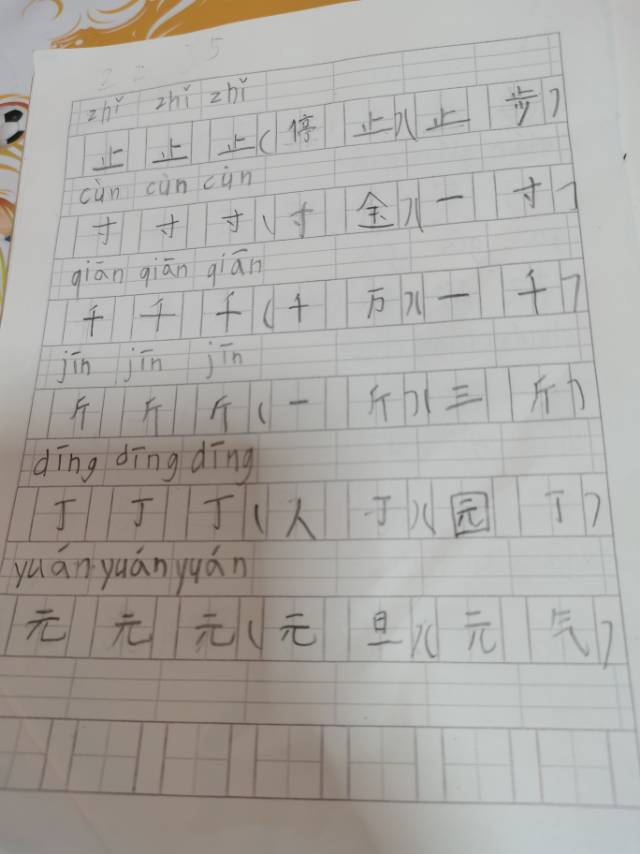 zhǐ zhǐ zhǐ
止 止 止(停 止)(止 步)
cùn cùn cùn
寸 寸 寸(寸 金)(一 寸)
qiān qiān qiān
千 千 千(千 万)(一 千)
jīn jīn jīn
斤 斤 斤(一 斤)(三 斤)
dīng dīng dīng
丁 丁 丁(人 丁)(园 丁)
yuán yuán yuán
元 元 元(元 旦)(元 气)